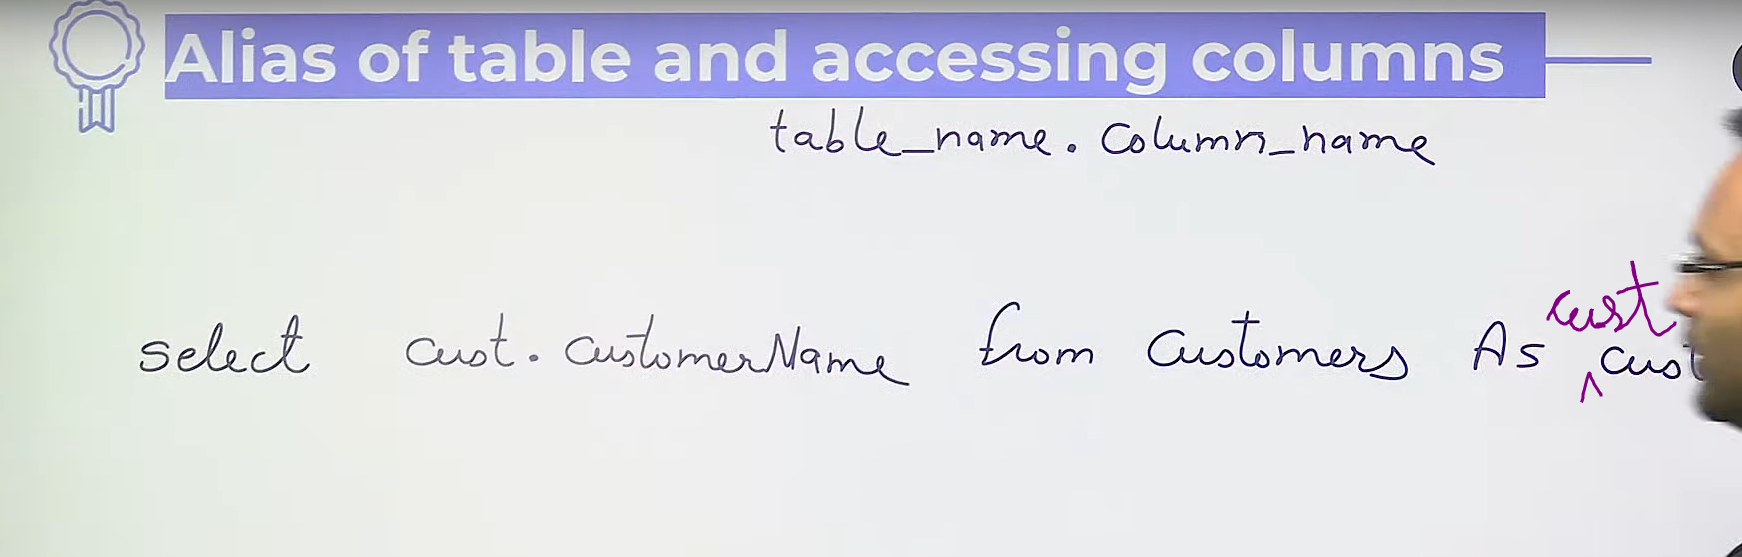 Alias of table and accessing columns
table_name.Column_name
select cust.CustomerName from Customers As cust
cust